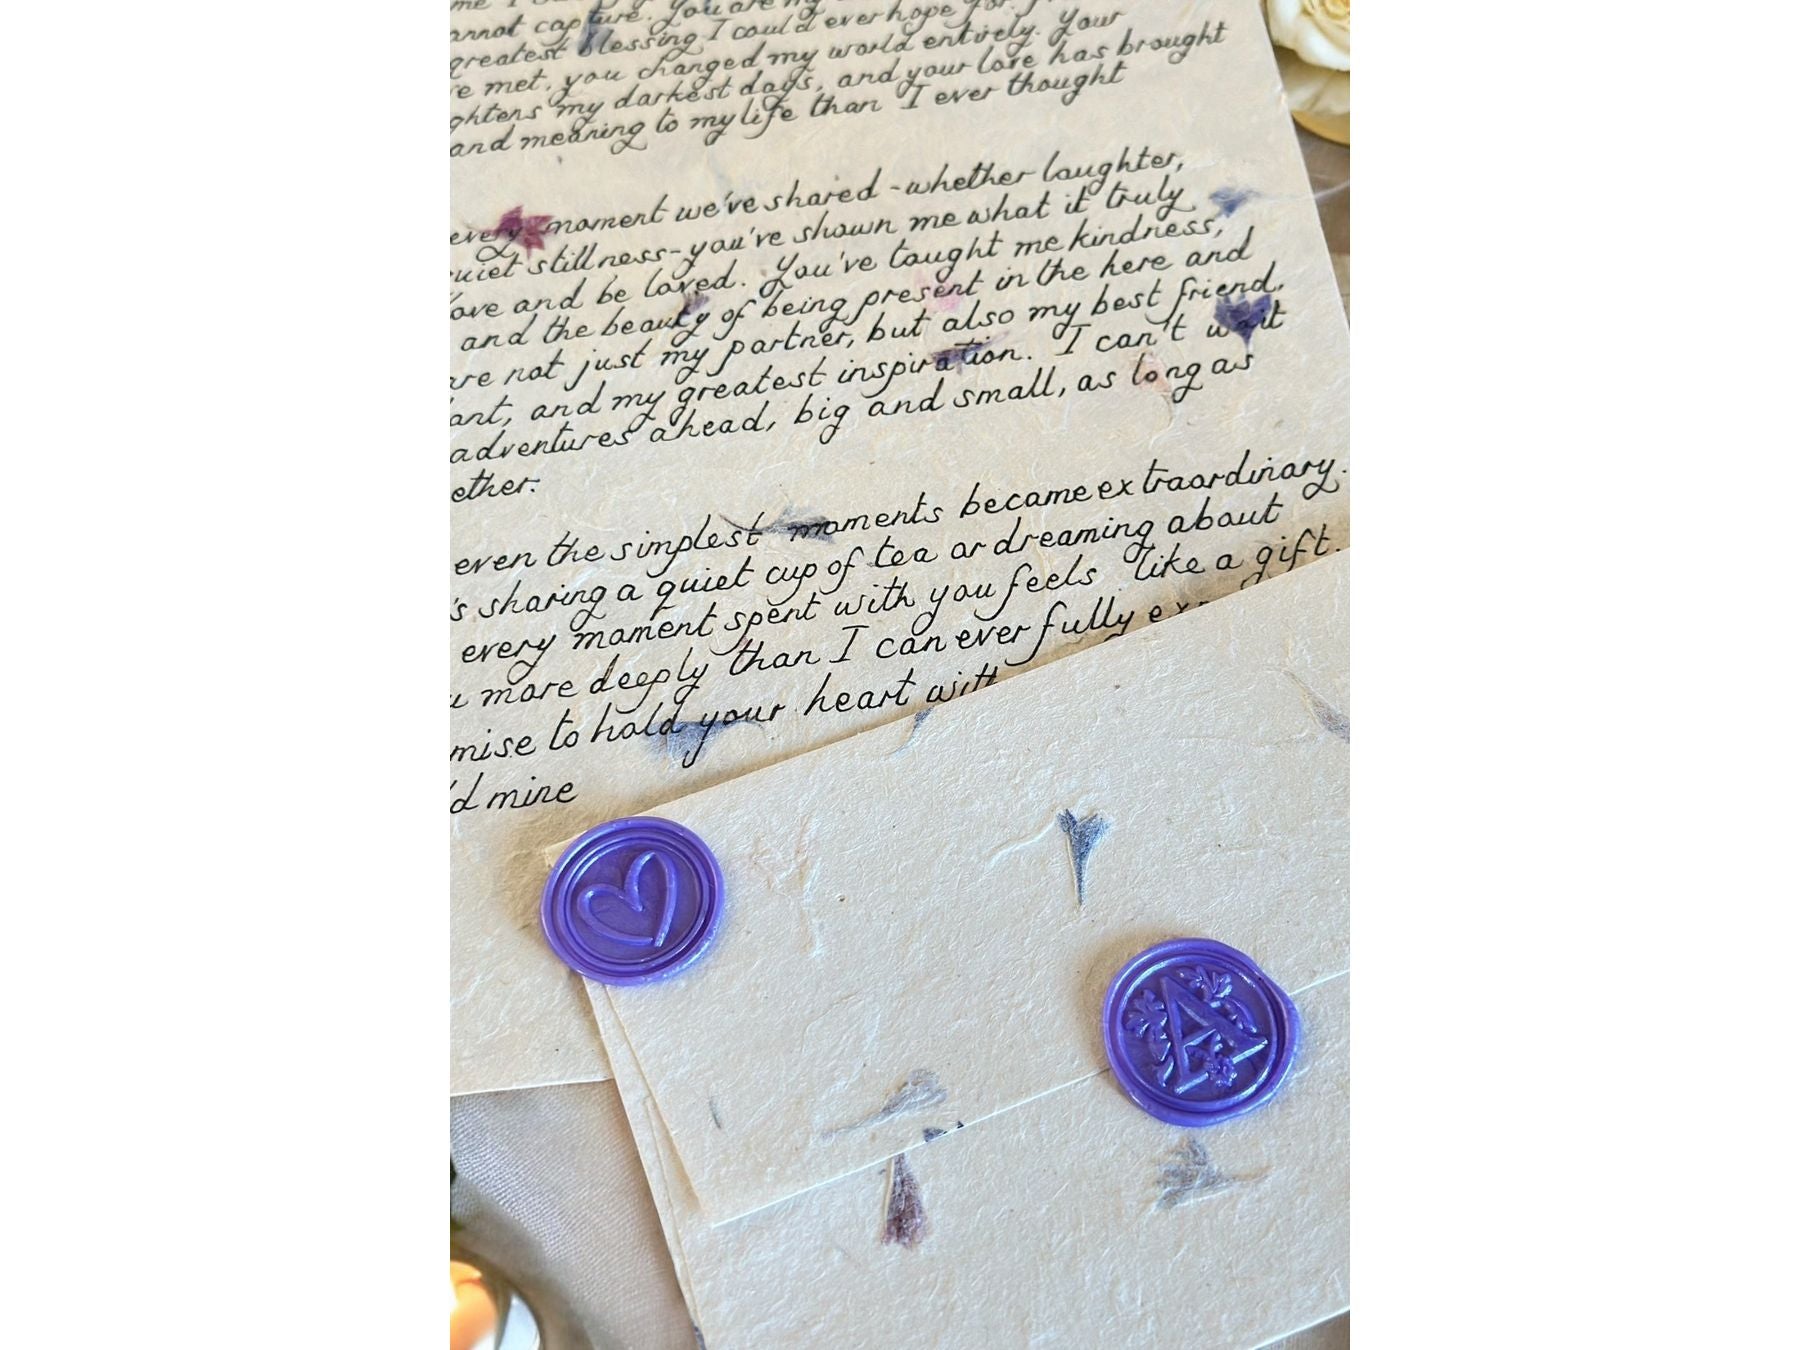 cannot capture. You are my
greatest blessing I could ever hope for.
we met, you changed my world entirely. Your
my darkest days, and your love has brought
and meaning to my life than I ever thought
every moment we've shared - whether laughter,
quiet stillness - you've shown me what it truly
love and be loved. You've taught me kindness,
and the beauty of being present in the here and
are not just my partner, but also my best friend,
and my greatest inspiration. I can't wait
adventures ahead, big and small, as long as
ether.
even the simplest moments became extraordinary.
's sharing a quiet cup of tea or dreaming about
every moment spent with you feels like a gift.
more deeply than I can ever fully
mise to hold your heart with
mine
A